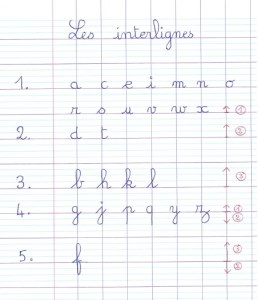 Les interlignes
1. a c e i m n o
r s u v w x ①
2. d t ②
3. b h k l ③
4. g j p q y z
5. f